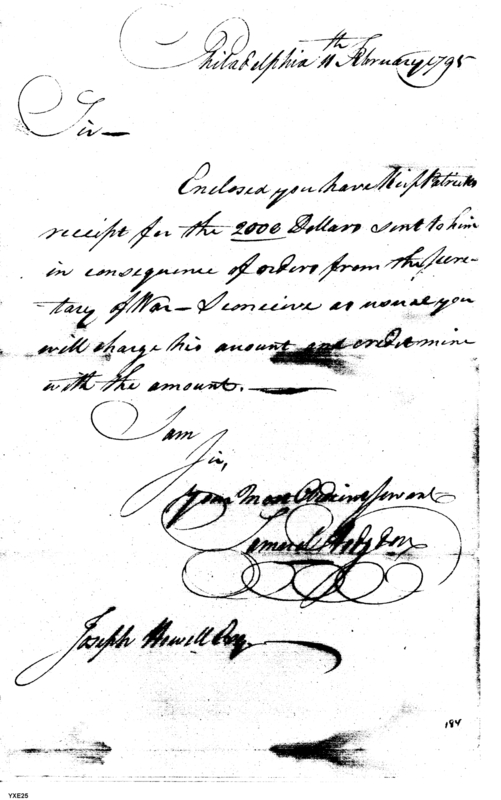 Philadelphia 11th February 1795
Sir —
Enclosed you have Kirkpatricks
receipt for the 2000 Dollars sent to him
in consequence of orders from the Secre-
tary of War — I conceive as usual you
will charge his amount and credit mine
with the amount. —
I am
Sir,
your most Obedient Servant
Samuel Hodgdon
Joseph Howell Esq.
184
YXE25